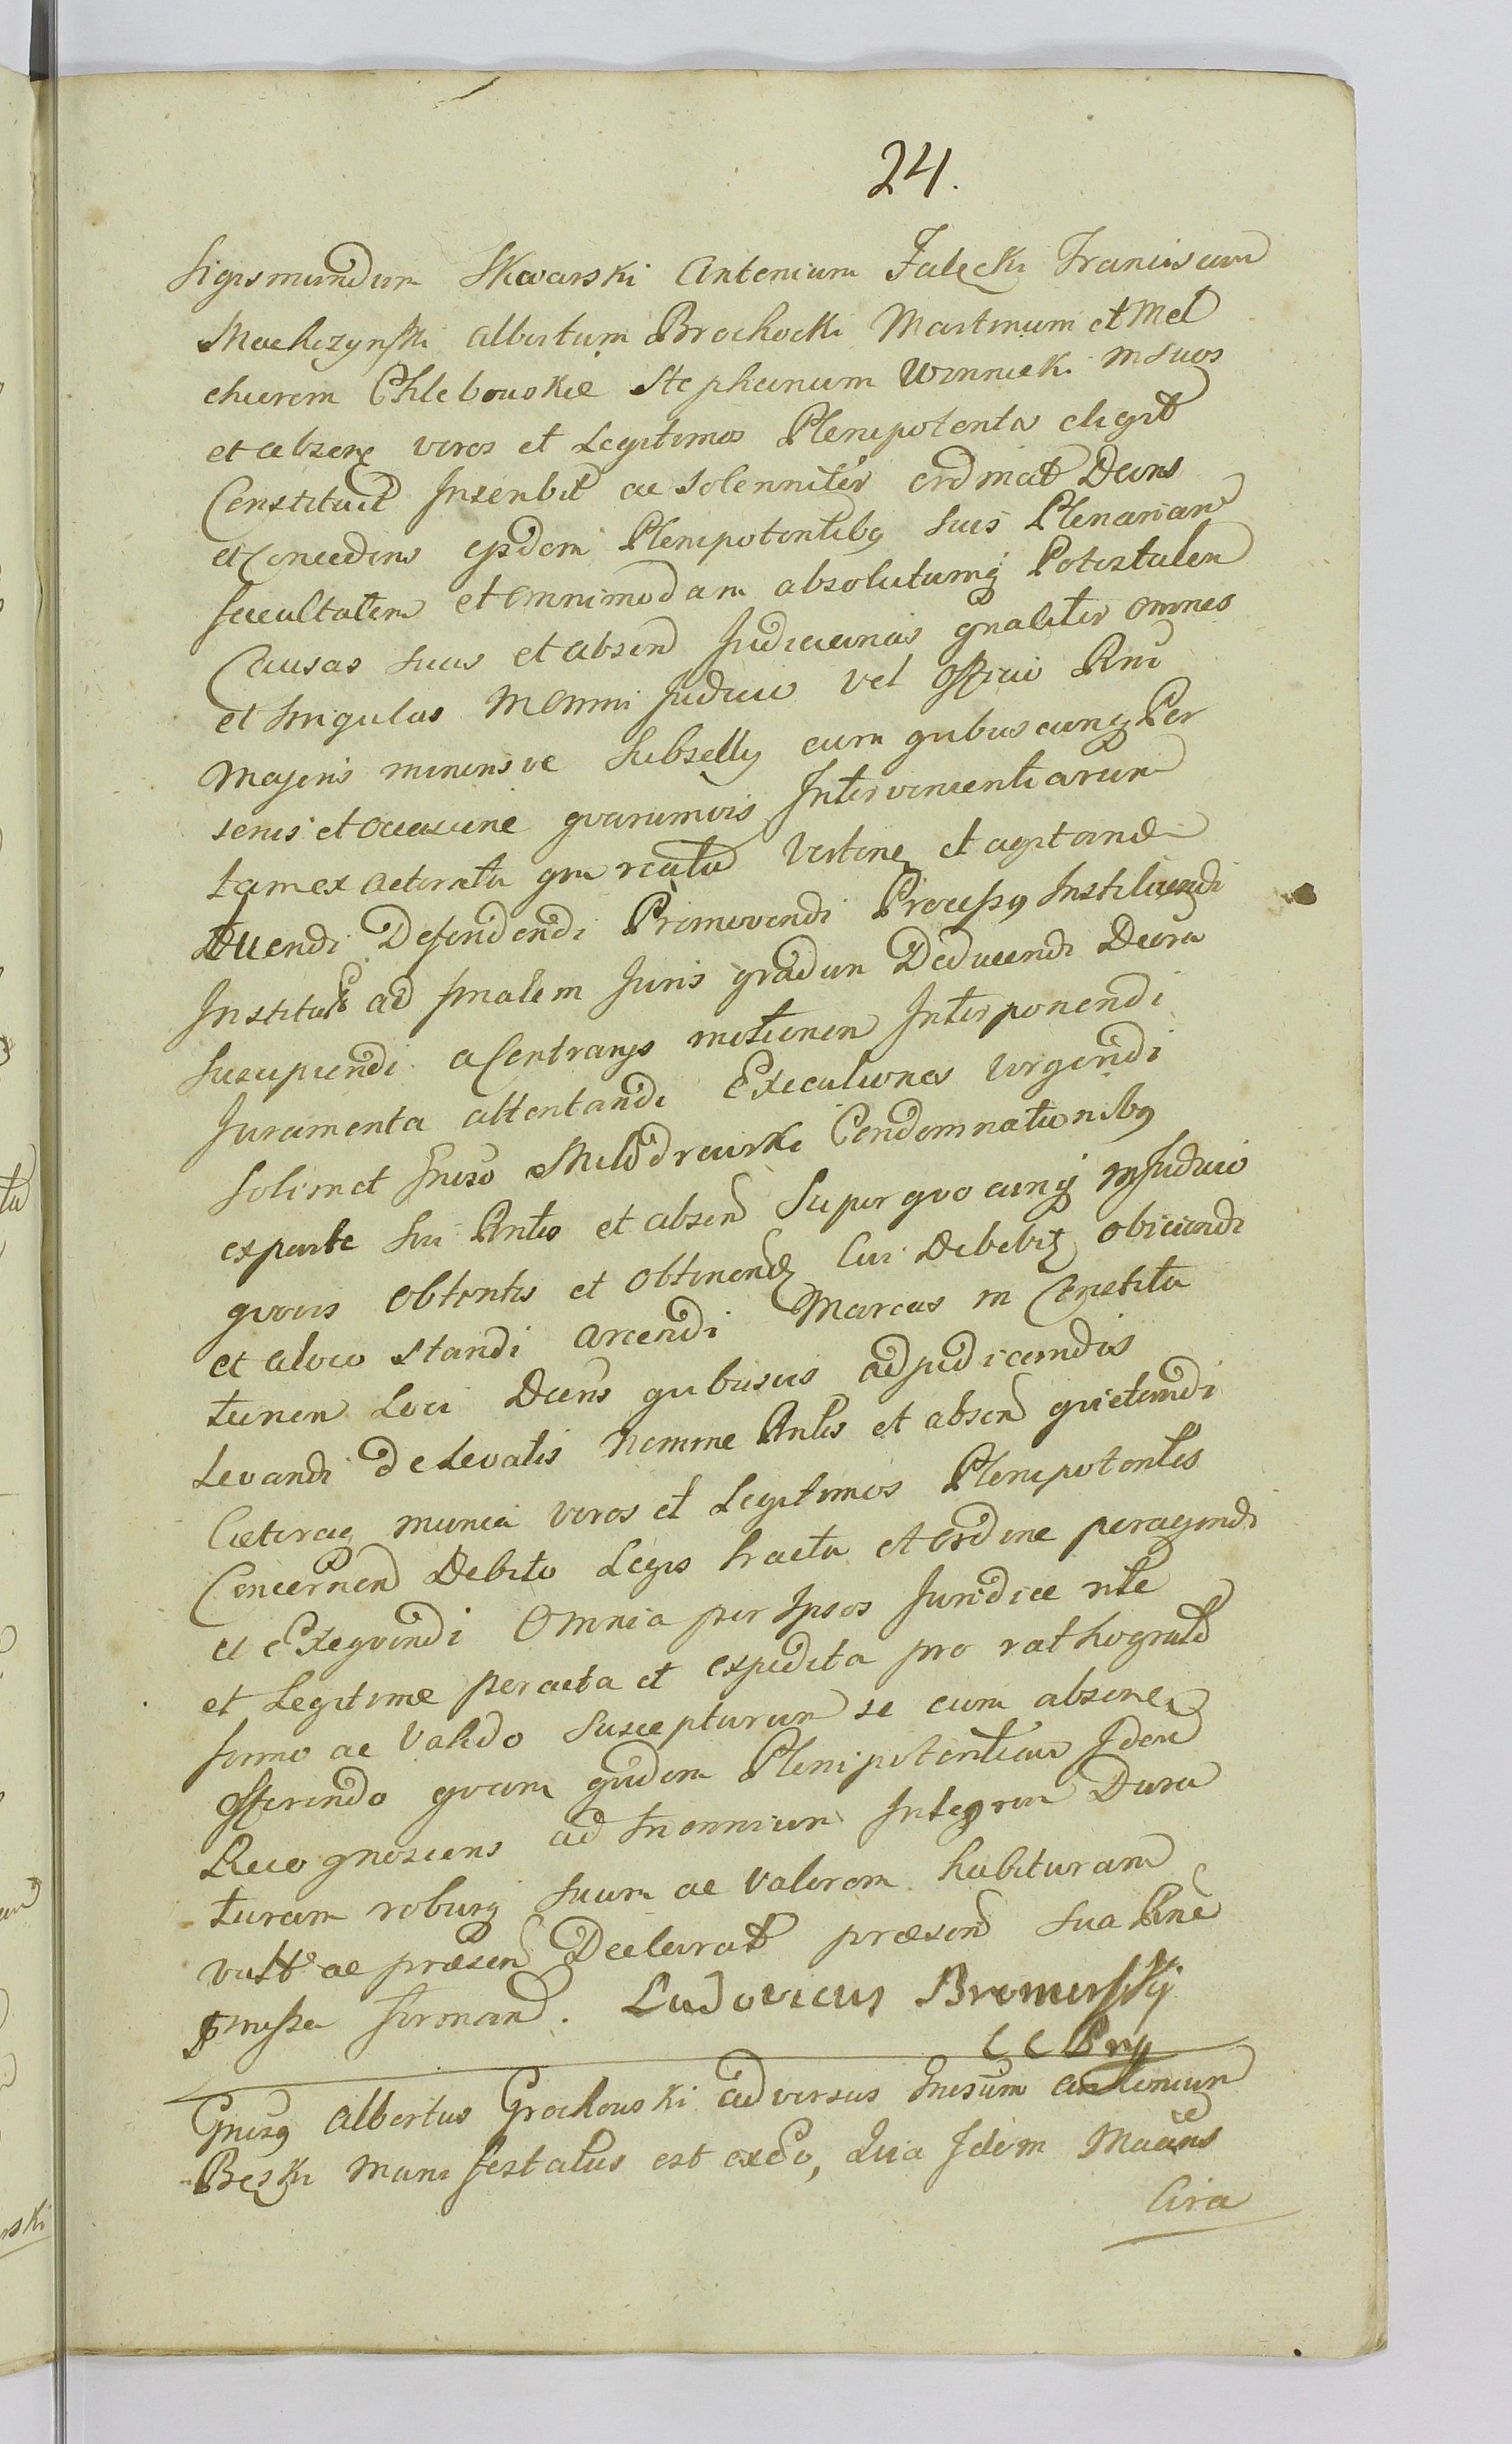 24.
Sigismundum Skwarski Antonium Falęcki Franciscum
Machczynski Albertum Brochocki Martinum et Mel
chiorem Chlebowskie Stephanum Winnicki in suos
et absen veros et Legitimos Plenipotentes eligit
Constituit Inscribit ac solenniter ordinat Dans
et Concedens ejsdem Plenipotentibq suis Plenariam
facultatem et omnimodam absolutamq Potestatem
Causas suas et absen Judiciarias gnaliter omnes
et singulas in omni Judicio vel Officio Rni
Majoris minorisve Subselly cum quibuscunq Per
sonis et occasione quarumvis Intervenientiarum
tam ex actoratu qm reatu vertene et agitandi
Tuendi Defendendi Promovendi Processq Instituendi
Institut ad finalem Juris gradum Deducendi Decra
Suscipiendi a Contrarys motionem Interponendi
Juramenta attentandi Executiones Urgendi
Solimet Gnoso Milodrowski Condemnationibq
ex parte sui Rntis et absen Super quocunq in Judicio
quovis obtentis et obtinend Cui Debebit obiiciendi
et a loco standi arcendi Marcas in Constitu
tionem Loci Decris quibusvis adjudicandis
Levandi de Levatis nomine Rntis et absen quietandi
Cæteraq munia veros et Legitimos Plenipotentes
Concernen Debito Legis tractu et ordine peragendi
et Exequendi Omnia per Ipsos Juridice rite
et Legitime peracta et expedita pro ratho grato
firmo ac valido suscepturum se cum absene
offerendo quam quidem Plenipotentiam Idem
Recognoscens ad Triennium Integrum Dura
turam roburq suum ac valorem habituram
vult ac præsen Declarat præsen sua Rne
pmissa firman. Ludovicus Bromirssky
C C Prg
Gnosq Albertus Grochowski adversus Gnosum Antonium
Bęski manifestatus est exeo, Quia Idem Maans
Cira